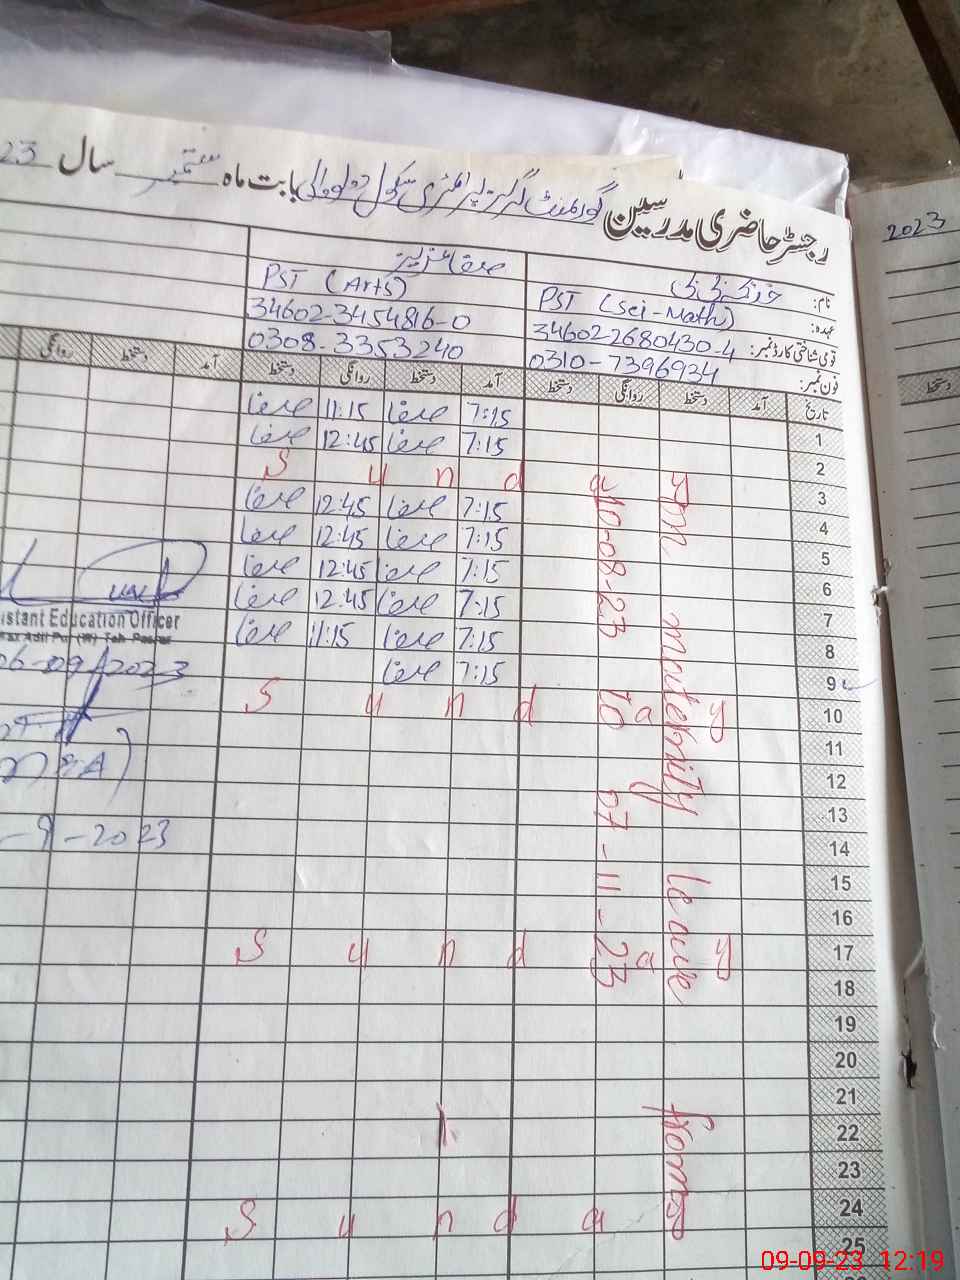 رجسٹر حاضری مدرسین گورنمنٹ گرلز پرائمری سکول بابت ماہ ستمبر سال 23
نام:
عہدہ: PST (Sci-Math) PST (Arts)
قومی شناختی کارڈ نمبر: 34602-2680430-4 34602-3454816-0
فون نمبر: 0310-7396934 0308-3353240
تاریخ آمد دستخط روانگی دستخط آمد دستخط روانگی دستخط آمد دستخط روانگی
1 7:15 11:15
2 7:15 12:45
3 S u n d a y
4 7:15 12:45
5 7:15 12:45
6 7:15 12:45
7 7:15 12:45
8 7:15 11:15
9 7:15
10 S u n d a y
11
12
13
14
15
16
17 S u n d a y
18
19
20
21
22
23
24 S u n d a
25
maternity leave from
10-08-23 to 07-11-23
istant Education Officer
06-09-2023
-9-2023
2023
دستخط
09-09-23 12:19